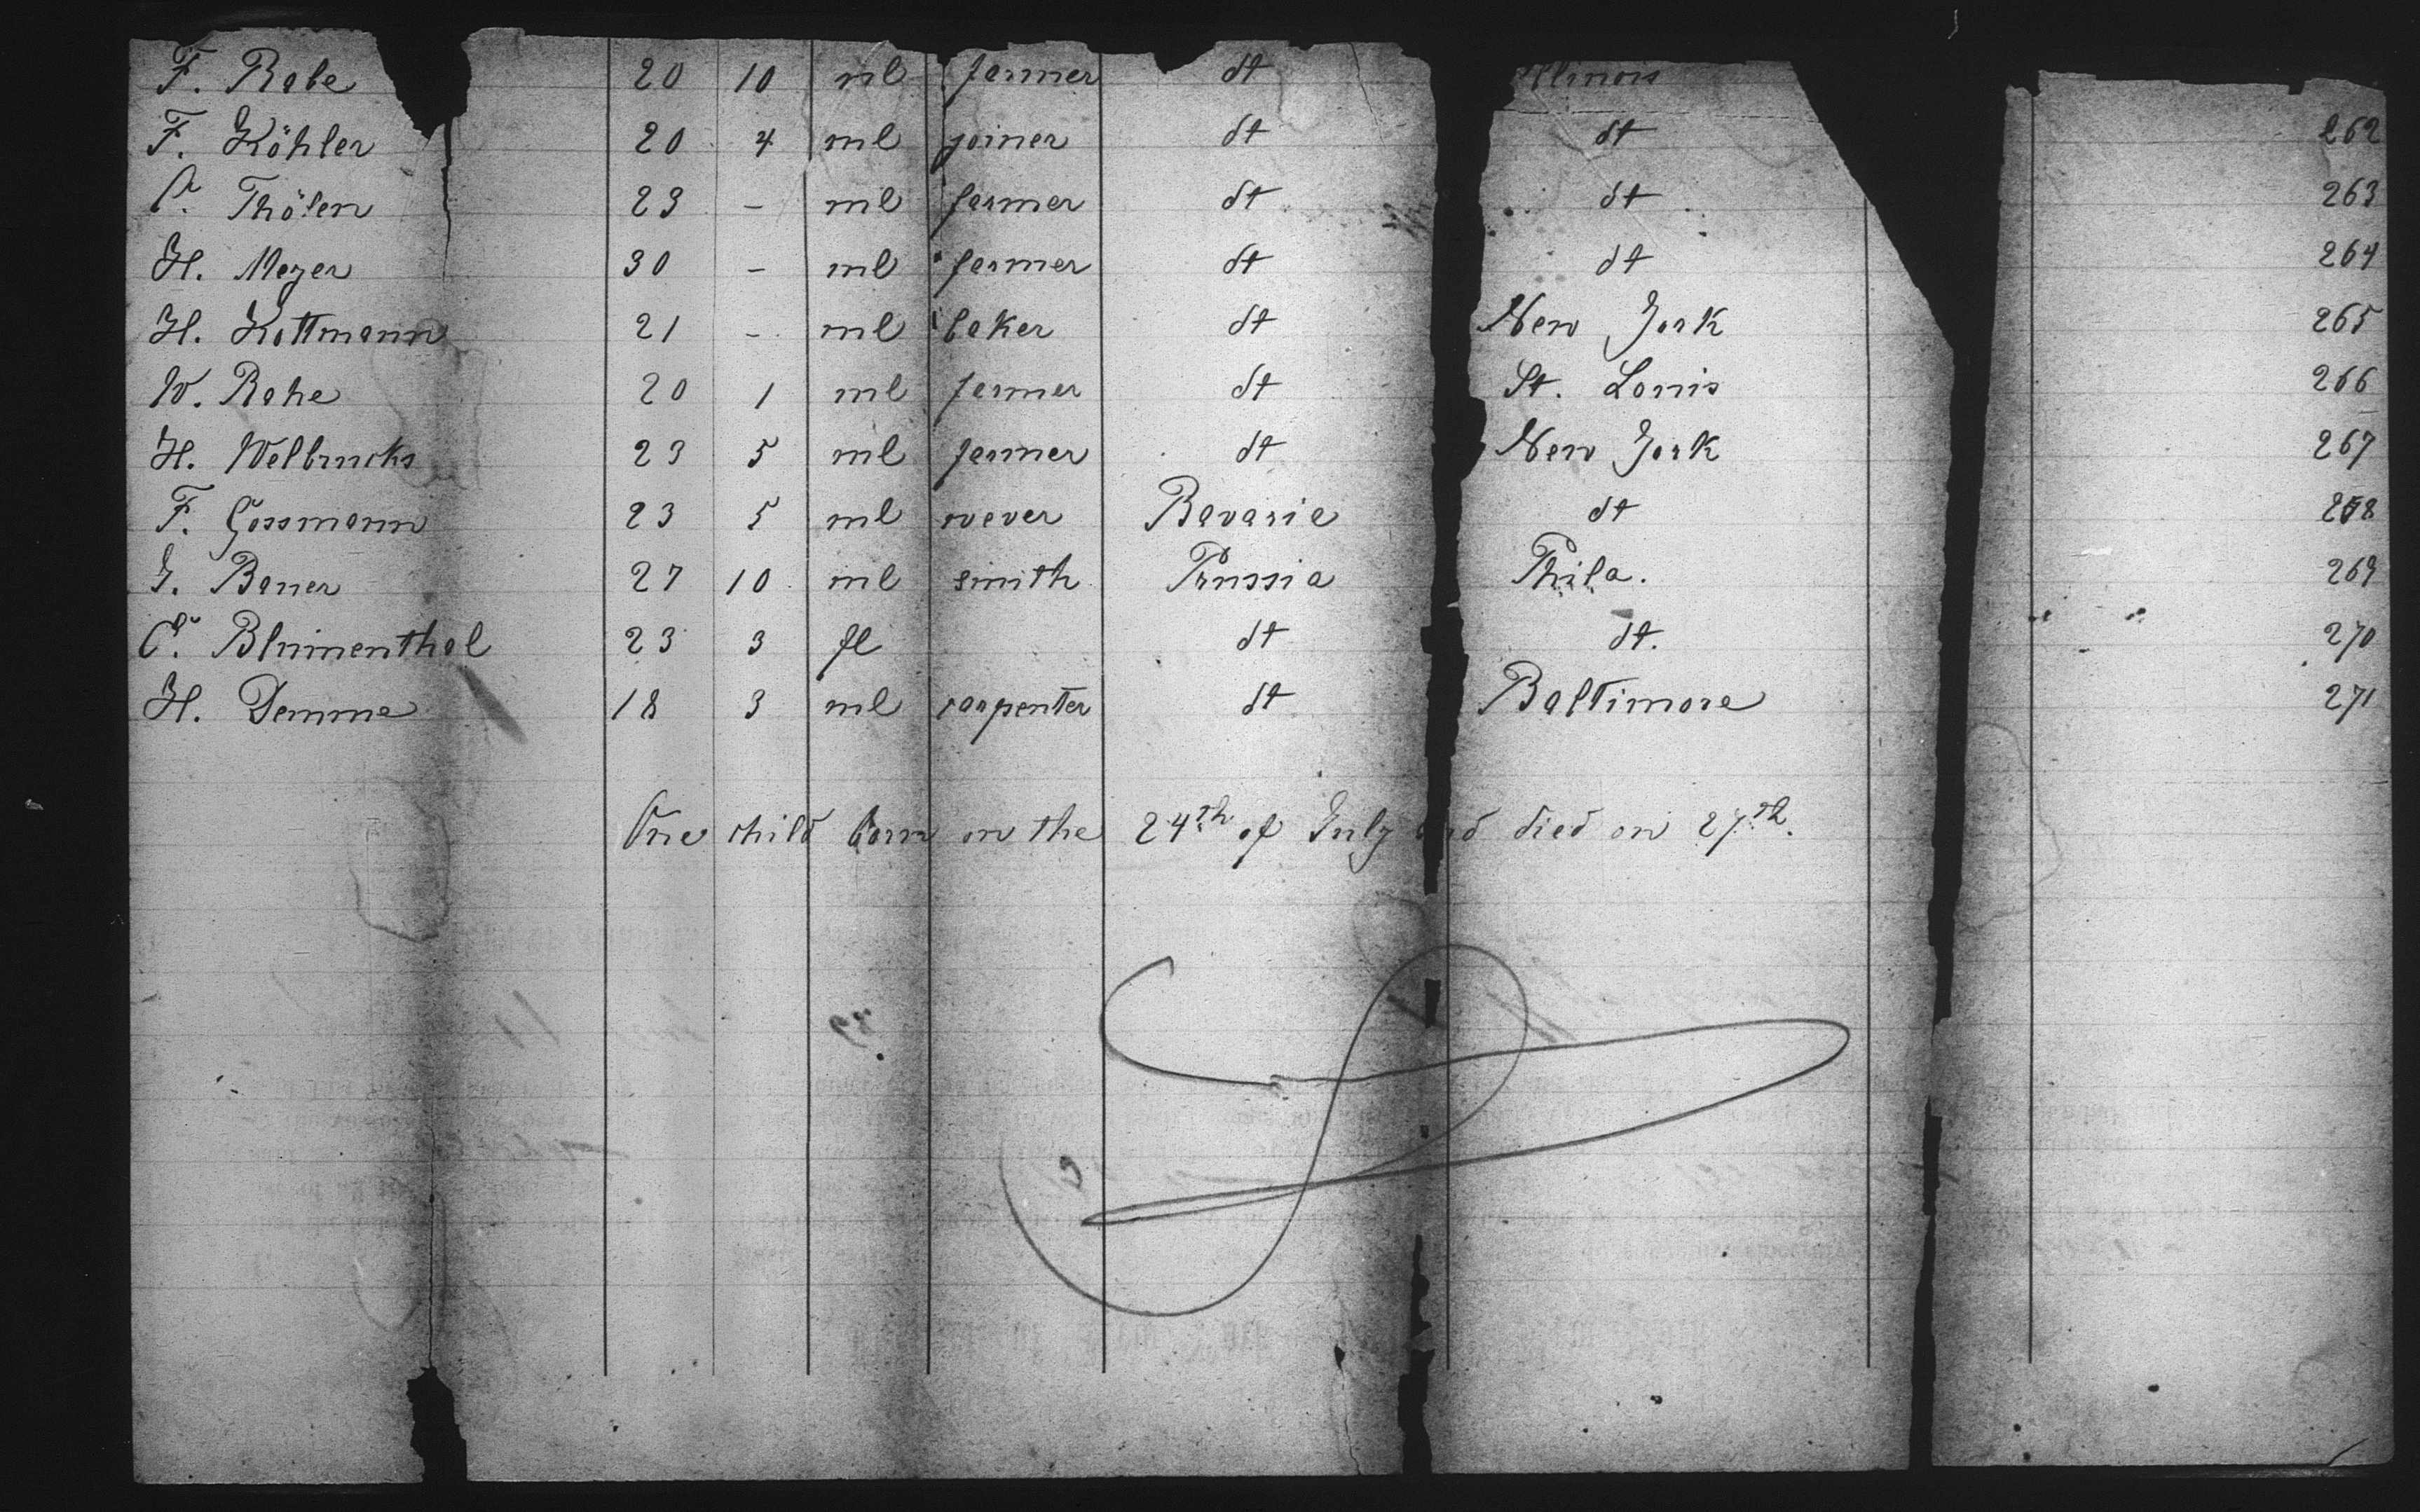 F. Rabe 20 10 ml farmer dt Illinois
F. Köhler 20 4 ml joiner dt dt 262
Thölen 23 - ml farmer dt dt 263
H. Meyer 30 - ml farmer dt dt 264
H. Kottmann 21 - ml baker dt New York 265
W. Rahe 20 1 ml farmer dt St. Louis 266
H. Welbrucks 23 5 ml farmer dt New York 267
F. Gossmann 23 5 ml wever Bavaria dt 268
J. Bauer 27 10 ml smith Prussia Phila. 269
C. Blumenthal 23 3 fl dt dt. 270
H. Demme 18 3 ml carpenter dt Baltimore 271
One child born on the 24th of July and died on 27th.